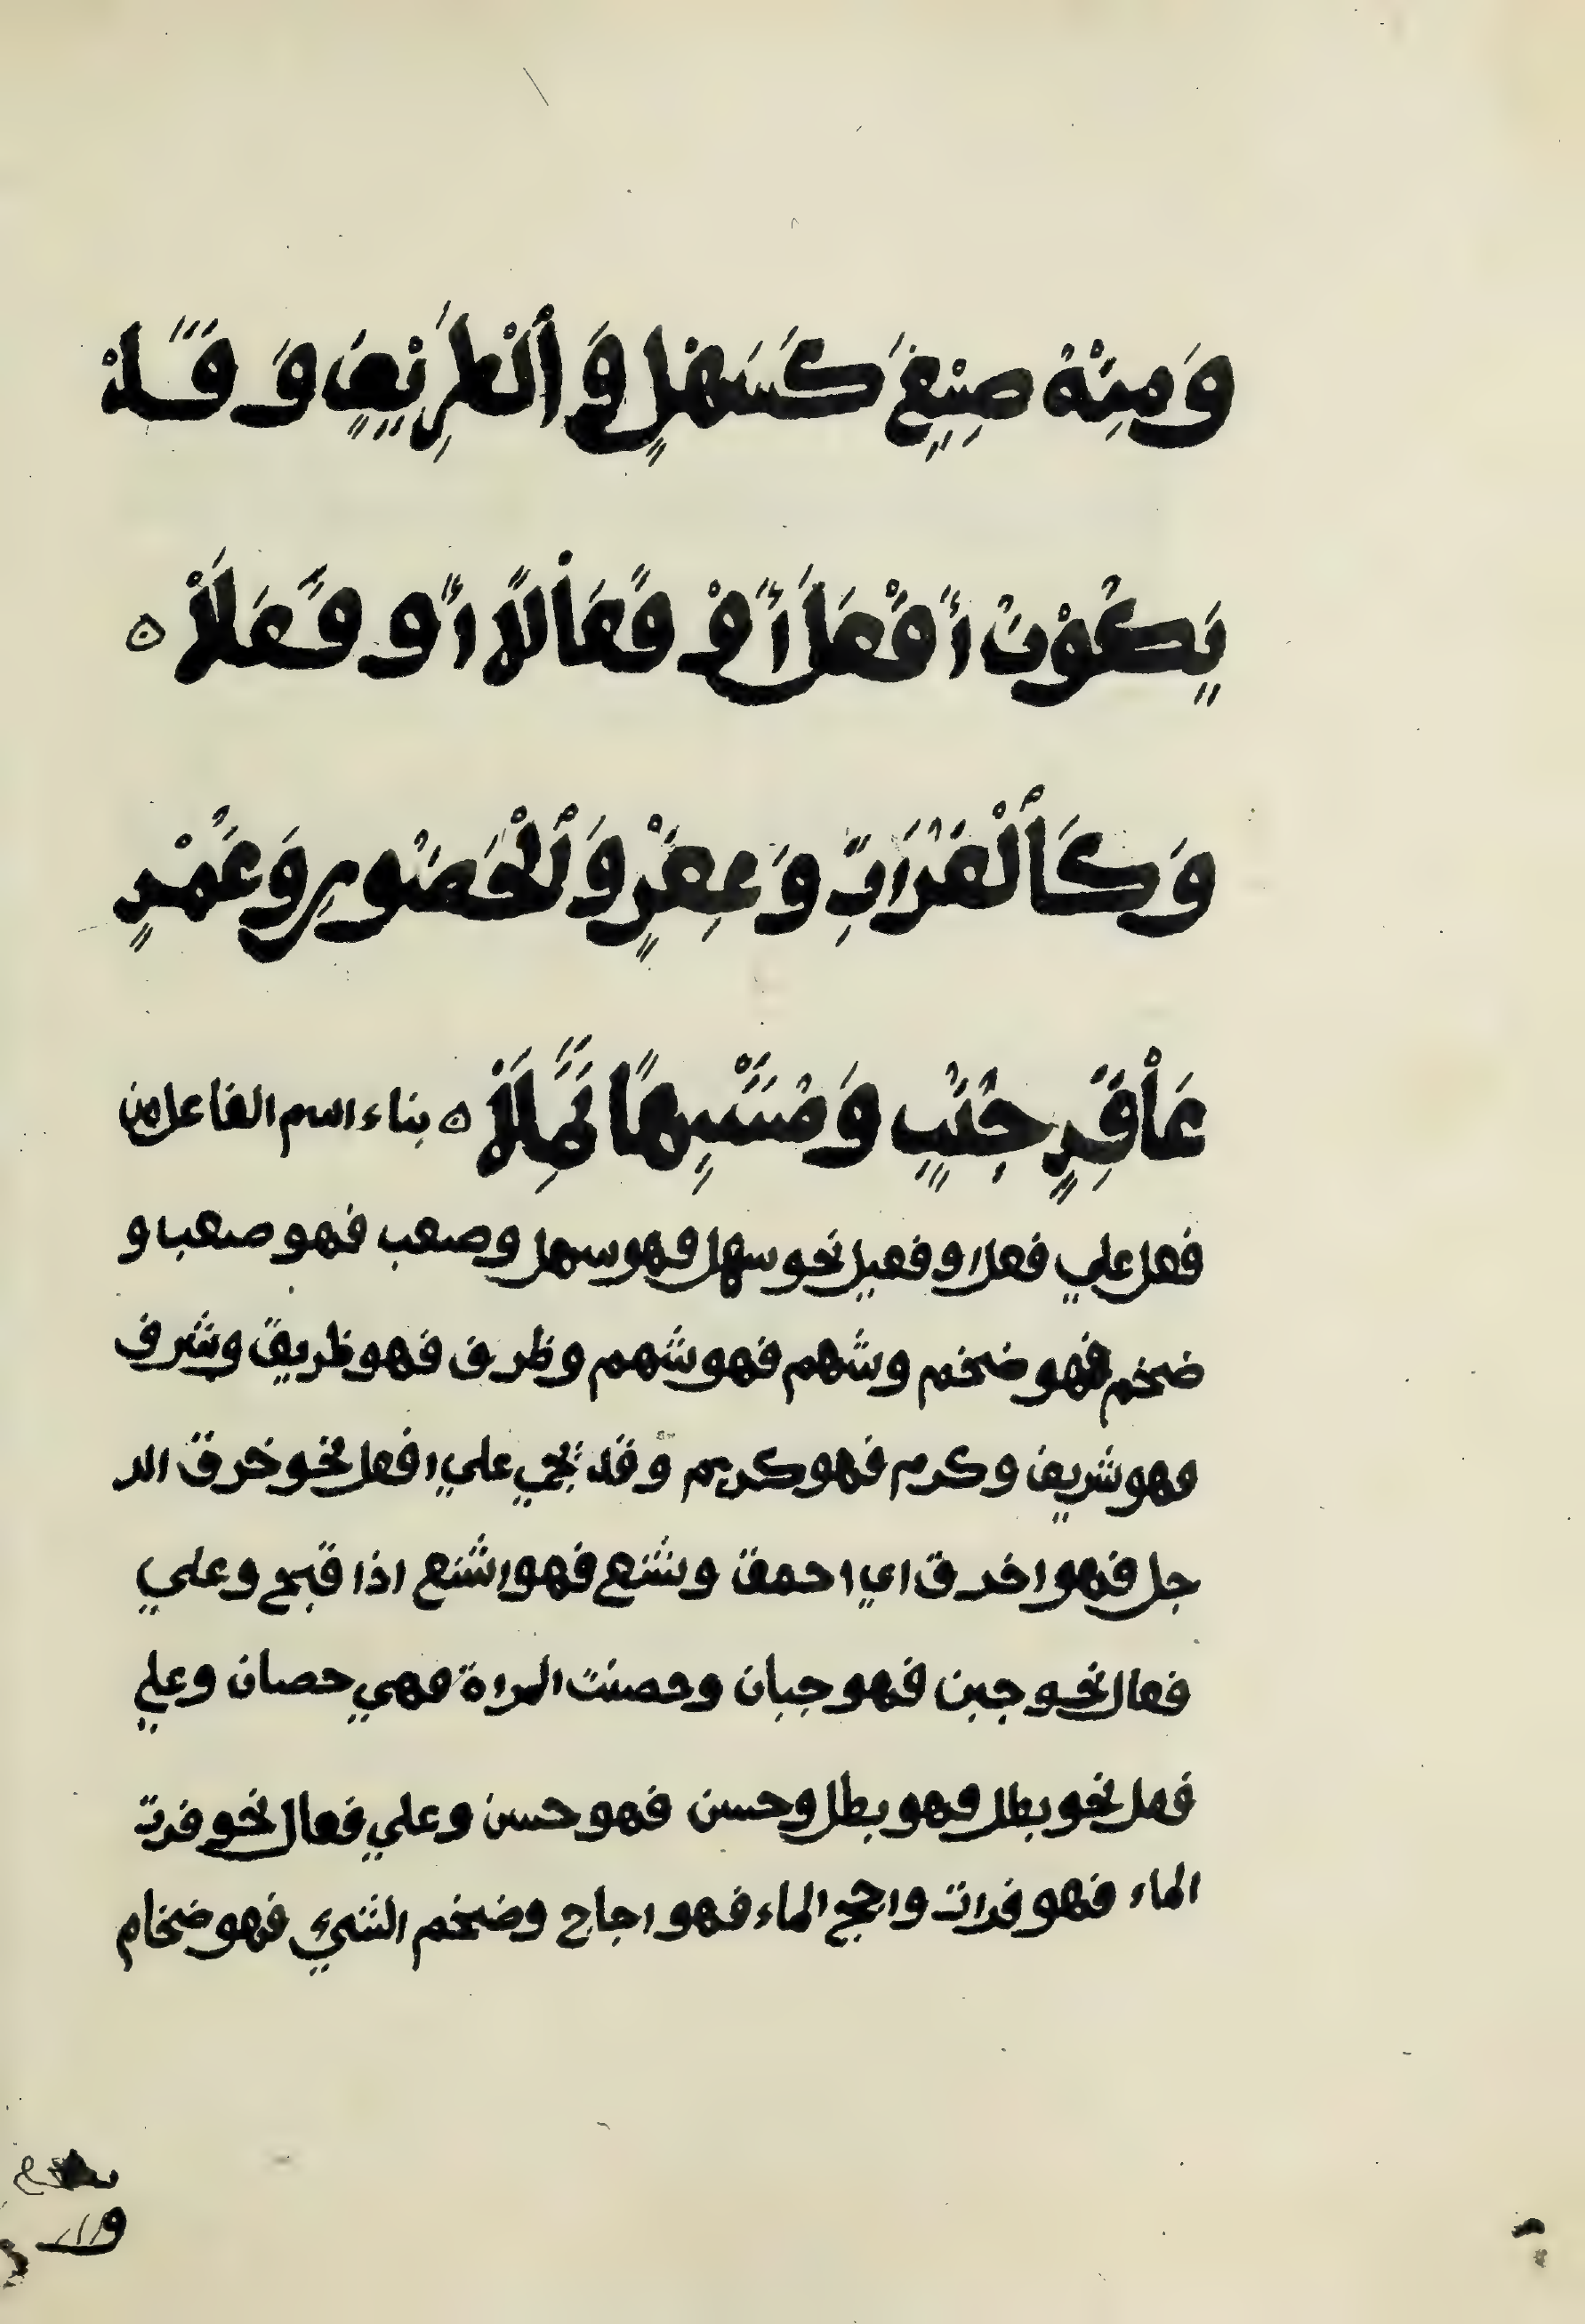 وَمِنْهُ صِيْغَ كَسَهْلٍ وَٱلْظَرِيْفِ وَقَدْ
يَكُوْنُ أَفْعَلَ أَوْ فَعَالًا أَوْ فَعَلَاْ ه
وَكَٱلْفُرَاتِ وَعِفْرٍ وَٱلْحَصُوْرِ وَغُمْرٍ
عَاْقِرٍ جُنُبٍ وَمُشْبِهًا ثَمِلَاْ ه بناء اسم الفاعل من
فعل علي فعل او فعيل نحو سهل فهو سهل وصعب فهو صعب او
ضخم فهو ضخم وشهم فهو شهم وظرف فهو ظريف وشرف
فهو شريف وكرم فهو كريم وقد يجي علي افعل نحو خرق الر
جل فهو اخرق اي احمق وشنع فهو اشنع اذا قبح وعلي
فعال نحو جبن فهو جبان وحصنت المراة فهي حصان وعلي
فعل نحو بطل فهو بطل وحسن فهو حسن وعلي فعال نحو فرت
الماء فهو فرات واجج الماء فهو اجاج وضخم الشيء فهو ضخام